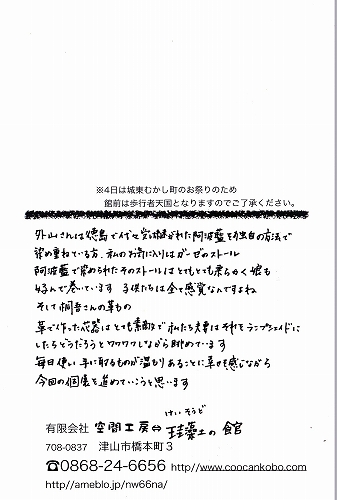 ※4日は城東むかし町のお祭りのため
館前は歩行者天国となりますのでご了承ください。
外山さんは徳島で代々受け継がれた阿波藍を独自の方法で
染め重ねている方、私のお気に入りはガーゼのストール
阿波藍で染められたそのストールはとてもとても柔らかく娘も
好んで巻いています 子供たちは全て感覚なんですよね
そして桐吾さんの草もの
草で作った花器はとても素敵で 私たち夫妻はそれをランプシェイドに
したらどうだろうとワクワクしながら眺めています
毎日使い 手に取るものが温もりあることに幸せを感じながら
今回の個展を進めていこうと思います
けいそうど
有限会社 空間工房⇔珪藻土の館
708-0837 津山市橋本町3
☎0868-24-6656 http://www.coocankobo.com
http://ameblo.jp/nw66na/